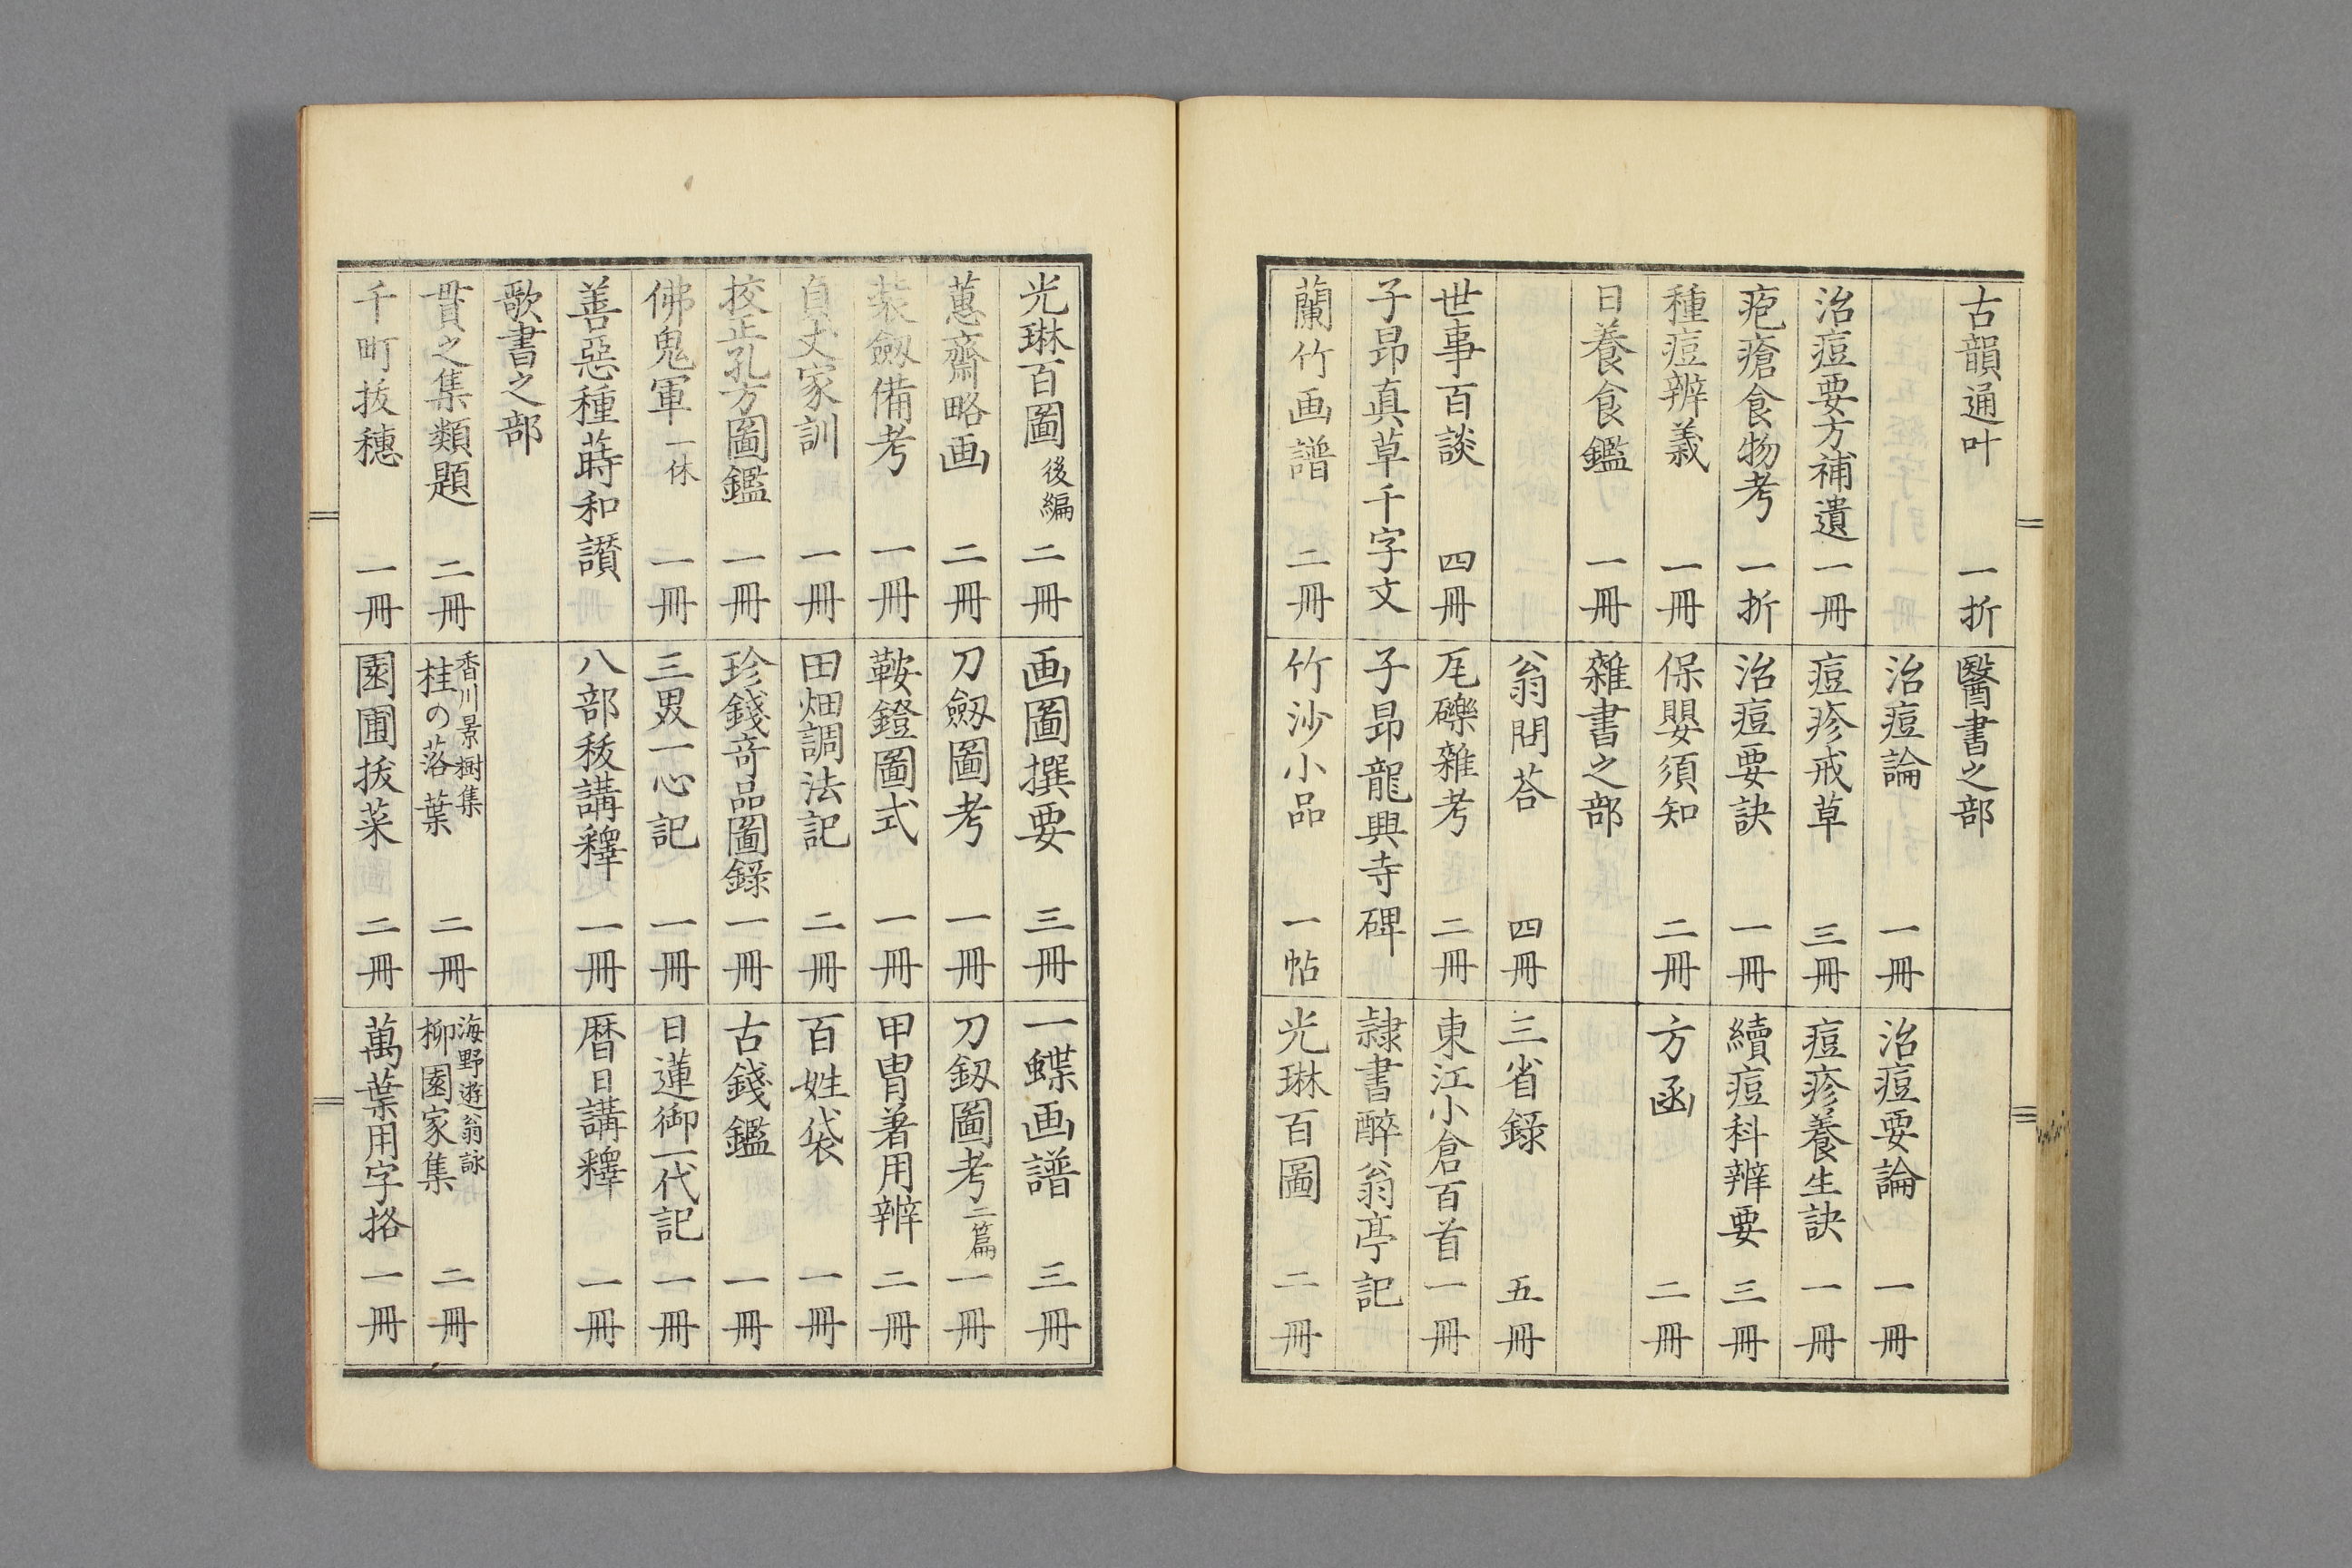 古韻通叶 一折 醫書之部
治痘論 一冊 治痘要論 一冊
治痘要方補遺 一冊 痘疹戒草 三冊 痘疹養生訣 一冊
疱瘡食物考 一折 治痘要訣 一冊 續痘科辨要 三冊
種痘辨義 一冊 保嬰須知 二冊 方函 二冊
日養食鑑 一冊 雜書之部
翁問荅 四冊 三省錄 五冊
世事百談 四冊 瓦礫雜考 二冊 東江小倉百首 一冊
子昂真草千字文 子昂龍興寺碑 隷書醉翁亭記
蘭竹画譜 二冊 竹沙小品 一帖 光琳百圖 二冊
光琳百圖 後編 二冊 画圖撰要 三冊 一蝶画譜 三冊
蕙齋略画 二冊 刀劔圖考 一冊 刀釼圖考 二篇 一冊
装劔備考 一冊 鞍鐙圖式 一冊 甲冑著用辨 二冊
貞丈家訓 一冊 田畑調法記 二冊 百姓袋 一冊
挍正孔方圖鑑 一冊 珍錢竒品圖錄 一冊 古錢鑑 一冊
佛鬼軍 一休 一冊 三界一心記 一冊 日蓮御一代記 一冊
善惡種蒔和讃 八部秡講釋 一冊 暦日講釋 一冊
歌書之部
貫之集類題 二冊 香川景樹集 桂の落葉 二冊 海野遊翁詠 柳園家集 二冊
千町抜穗 一冊 園圃抜菜 二冊 萬葉用字挌 一冊